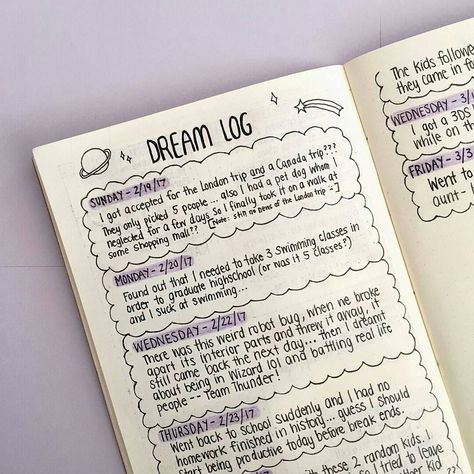 DREAM LOG
SUNDAY - 2/19/17
I got accepted for the London trip and a Canada trip???
They only picked 5 people... also I had a pet dog whom I
neglected for a few days so I finally took it on a walk at
some shopping mall?? [Note: still no news of the London trip :-]
MONDAY - 2/20/17
Found out that I needed to take 3 swimming classes in
order to graduate highschool (or was it 5 classes?)
and I suck at swimming...
WEDNESDAY - 2/22/17
There was this weird robot bug, when we broke
apart its interior parts and threw it away, it
still came back the next day... then I dreamt
about being in Wizard 101 and battling real life
people -- Team Thunder!
THURSDAY - 2/23/17
Went back to school suddenly and I had no
homework finished in history... guess I should
start being productive today before break ends.
these 2 random kids. I
so tried to leave
The kids followe
they came in fo
WEDNESDAY - 3/
I got a 3DS
while on th
FRIDAY - 3/3
Went to
aunt-